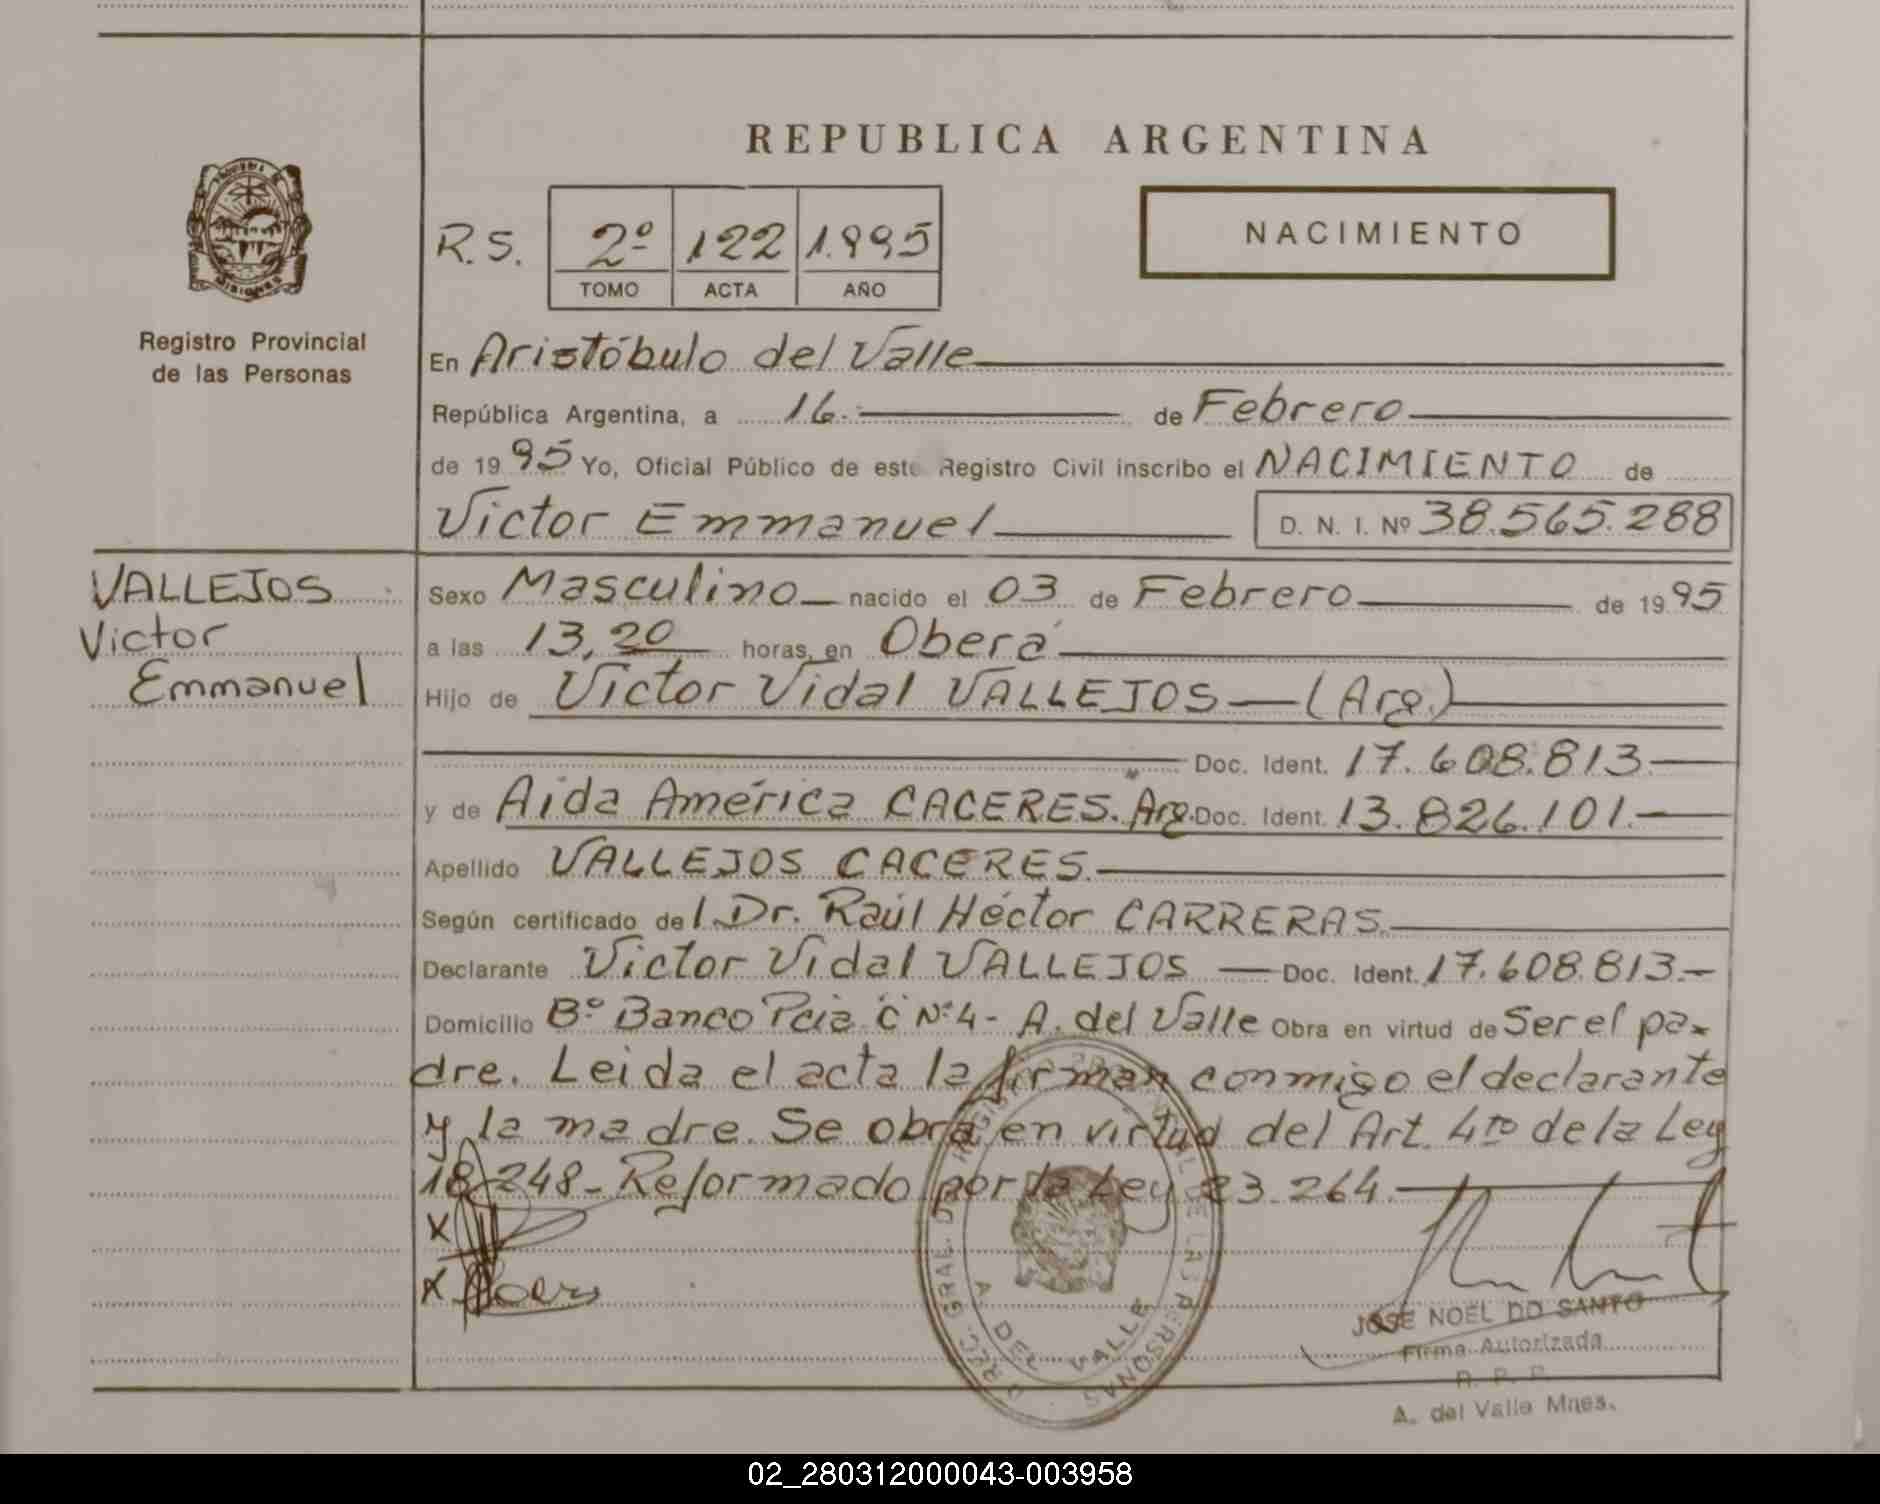 REPUBLICA ARGENTINA
R.S. 2º 122 1.995
TOMO ACTA AÑO
NACIMIENTO
MISIONES
Registro Provincial
de las Personas
En Aristóbulo del Valle
República Argentina, a 16. de Febrero
de 19 95 Yo, Oficial Público de este Registro Civil inscribo el NACIMIENTO de
Victor Emmanuel D. N. I. Nº 38.565.288
VALLEJOS
Victor
Emmanuel
Sexo Masculino nacido el 03 de Febrero de 19 95
a las 13,20 horas, en Oberá
Hijo de Victor Vidal VALLEJOS — (Arg.)
Doc. Ident. 17.608.813.
y de Aida América CACERES. Arg. Doc. Ident. 13.826.101.
Apellido VALLEJOS CACERES.
Según certificado del Dr. Raúl Héctor CARRERAS.
Declarante Victor Vidal VALLEJOS — Doc. Ident. 17.608.813.-
Domicilio Bº Banco Pcia C Nº 4 - A. del Valle Obra en virtud de Ser el pa-
dre. Leida el acta la firman conmigo el declarante
y la madre. Se obra en virtud del Art. 4to de la Ley
18.248 - Reformado por la Ley 23.264.
X
X
REGISTRO PROVINCIAL DE LAS PERSONAS
A. DEL VALLE
JOSE NOEL DO SANTO
Firma Autorizada
R. P. P.
A. del Valle Mnes.
02_280312000043-003958